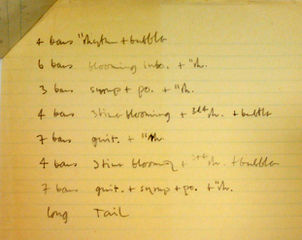 4 bars "rhythm + bubble
6 bars blooming intro. + "rh.
3 bars syrup + po. + "rh.
4 bars Stine blooming + rh. + bubble
7 bars guit. + "rh
4 bars Stine blooming + rh. + bubble
7 bars guit. + syrup + po. + "rh.
long Tail